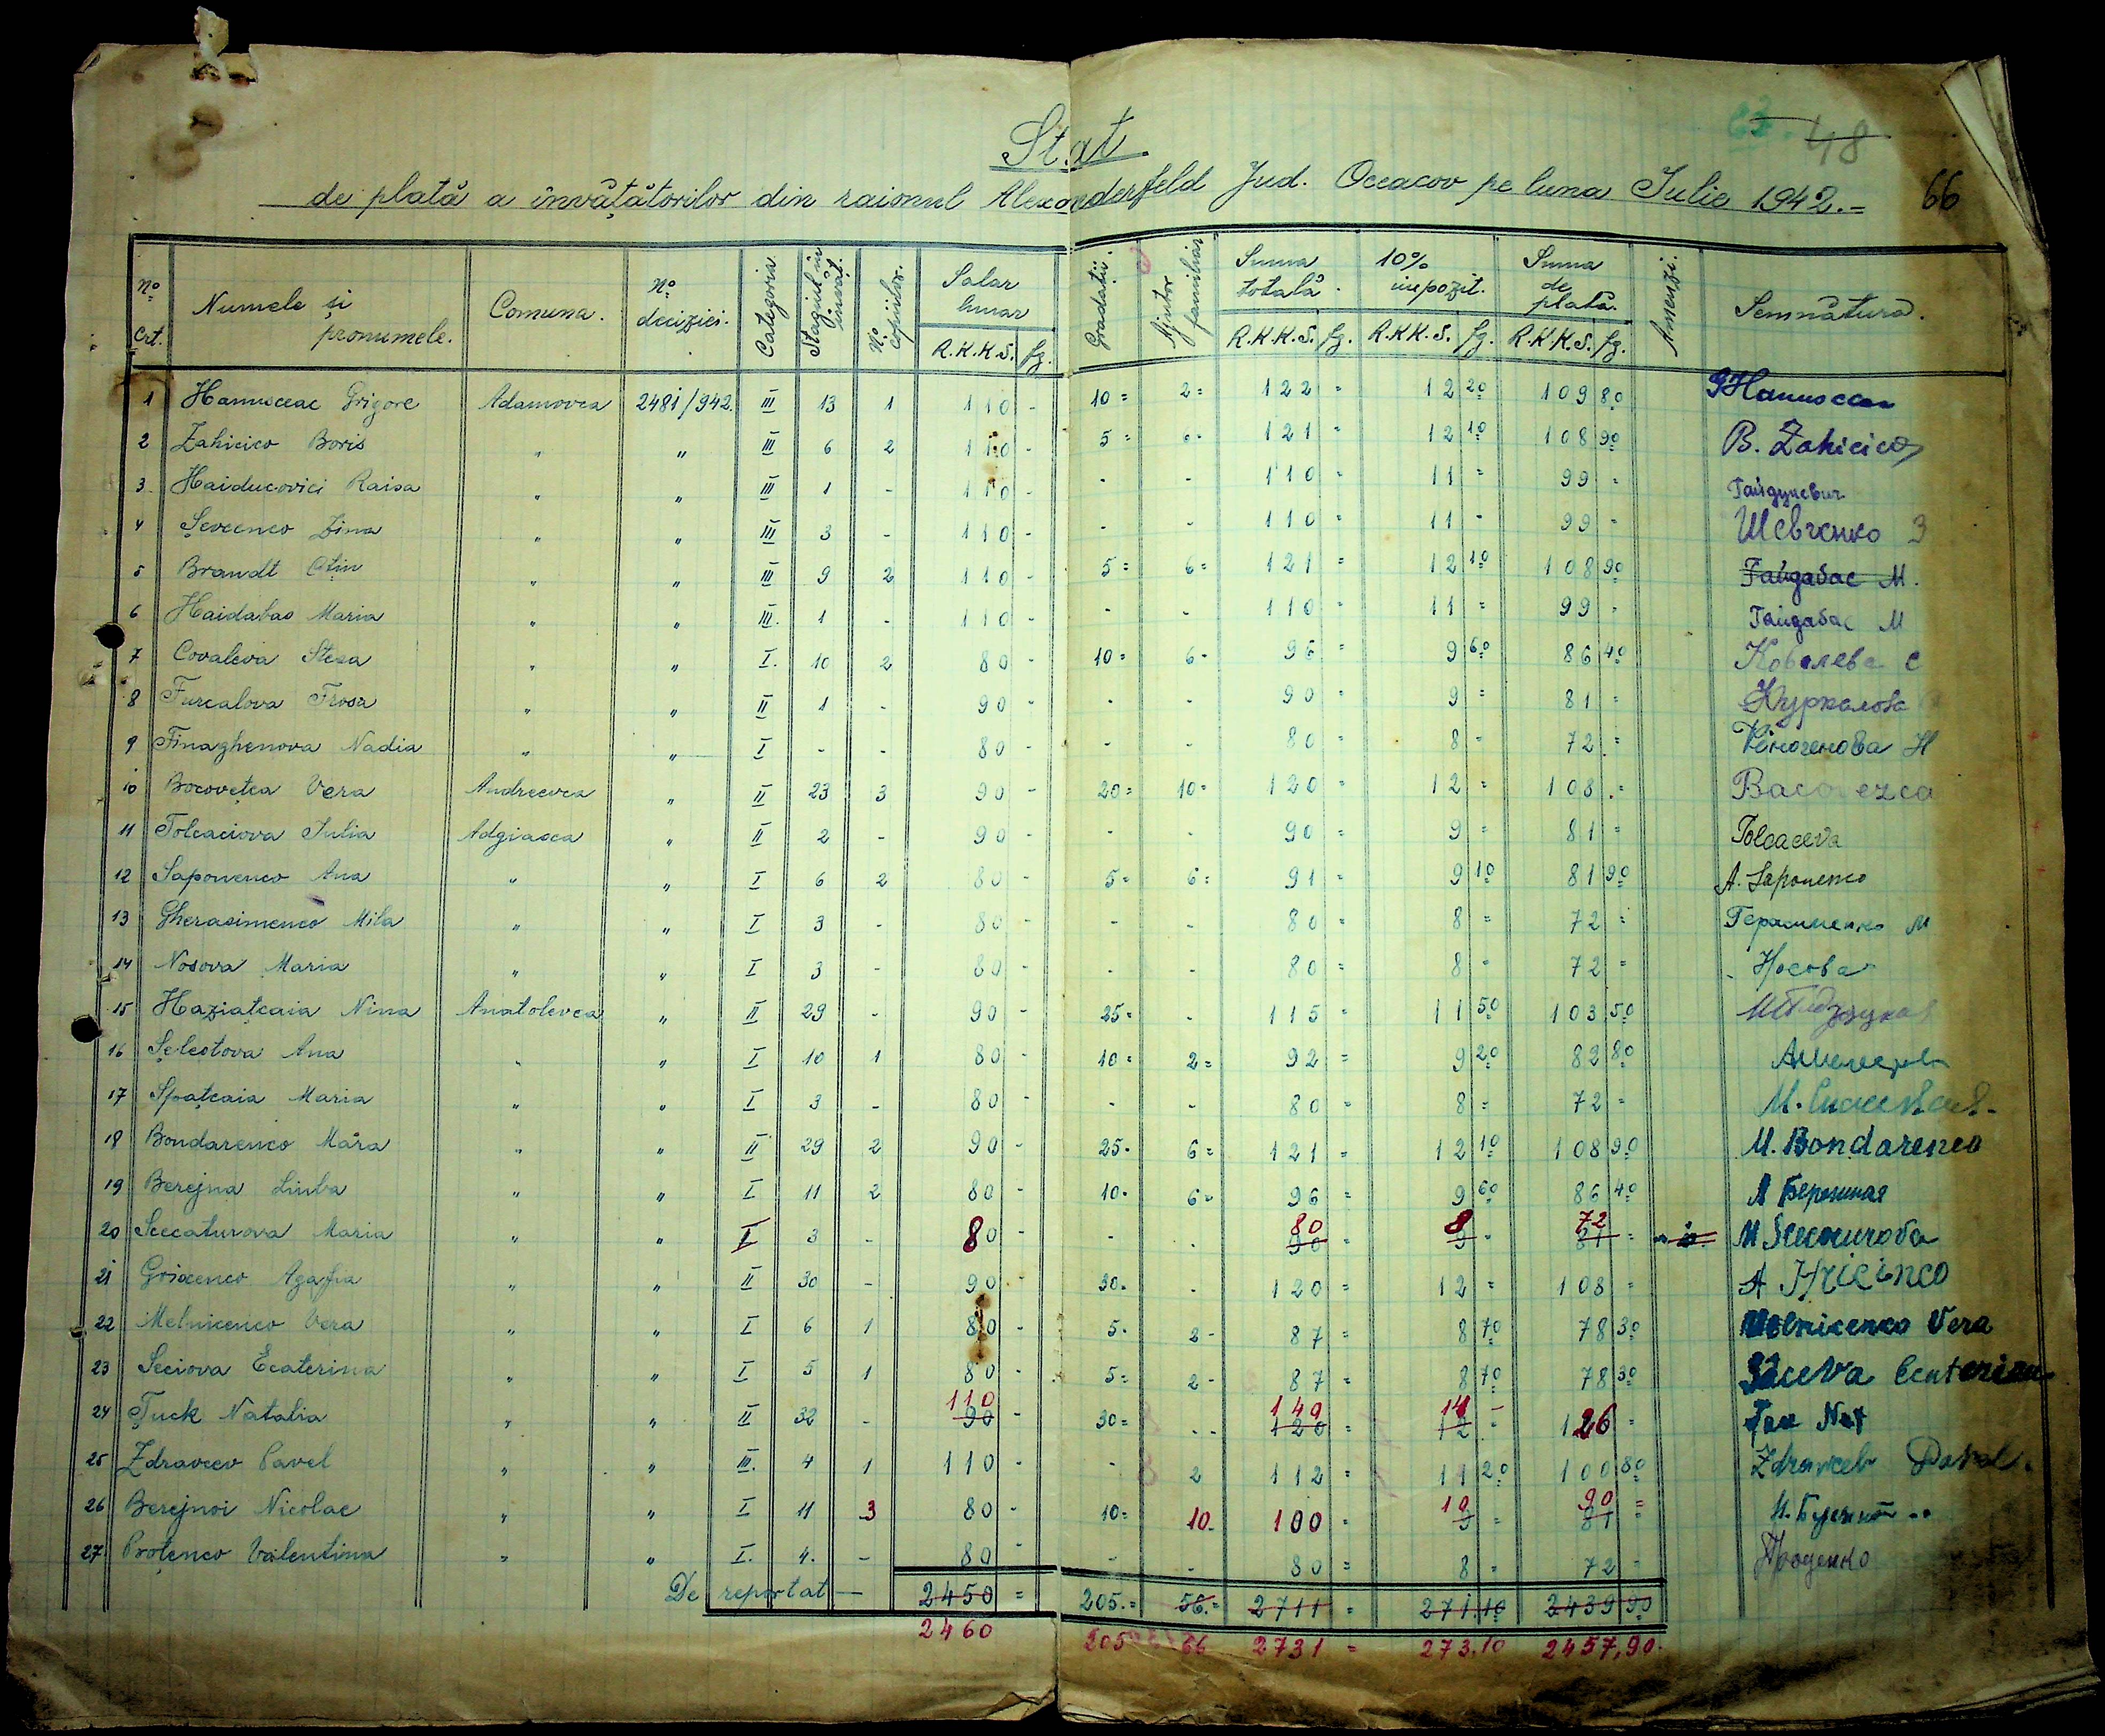 48
Stat
de plată a învățătorilor din raionul Alexanderfeld Jud. Oceacov pe luna Iulie 1942.=
66
No crt. Numele și pronumele. Comuna. No deciziei. Categoria Stagiul în învăț. No. copiilor. Salar lunar R.K.K.S. fg. Gradații. Ajutor familiar Suma totală. R.K.K.S. fg. 10% impozit. R.K.K.S. fg. Suma de plată. R.K.K.S. fg. Amenzi. Semnătura.
1 Hanusceac Grigore Adamovca 2481/942. III 13 1 110 - 10= 2= 122 = 12 20 109 80
2 Zahicico Boris " " III 6 2 110 - 5= 6= 121 = 12 10 108 90 B. Zahicico
3. Haiducovici Raisa " " III 1 - 110 - - - 110 = 11 = 99 = Гайдукевич
4 Șevcenco Zina " " III 3 - 110 - - - 110 = 11 = 99 = Шевченко З
5 Brandt " " III 9 2 110 - 5= 6= 121 = 12 10 108 90 Гайдабас М.
6 Haidabas Maria " " III. 1 - 110 - - - 110 = 11 = 99 = Гайдабас М
7 Covaleva Stesa " " I. 10 2 80 - 10= 6= 96 = 9 60 86 40 Ковалева С
8 Furcalova Frosa " " II 1 - 90 - - - 90 = 9 = 81 =
9 Finaghenova Nadia " " I - - 80 - - - 80 = 8 = 72 =
10 Bocovețca Vera Andreevca " II 23 3 90 - 20= 10= 120 = 12 = 108 =
11 Tolcaciova Iulia Adgiasca " II 2 - 90 - - - 90 = 9 = 81 = Tolcaceva
12 Saponenco Ana " " I 6 2 80 - 5= 6= 91 = 9 10 81 90 A. Saponenco
13 Gherasimenco Mila " " I 3 - 80 - - - 80 = 8 = 72 = Герасименко М
14 Nosova Maria " " I 3 - 80 - - - 80 = 8 = 72 = Носова
15 Haziațcaia Nina Anatolevca " II 29 - 90 - 25= - 115 = 11 50 103 50
16 Șelestova Ana " " I 10 1 80 - 10= 2= 92 = 9 20 82 80
17 Spațcaia Maria " " I 3 - 80 - - - 80 = 8 = 72 =
18 Bondarenco Măra " " II 29 2 90 - 25= 6= 121 = 12 10 108 90 M. Bondarenco
19 Berejna Liuba " " I 11 2 80 - 10= 6= 96 = 9 60 86 40 Л Бережная
20 Scecaturova Maria " " I 3 - 80 - - - 80 90 = 8 9 = 72 81 =
21 Grixenco Agafia " " II 30 - 90 - 30= - 120 = 12 = 108 = A Hricinco
22 Melnicenco Vera " " I 6 1 80 - 5= 2= 87 = 8 70 78 30 Melnicenco Vera
23 Seciova Ecaterina " " I 5 1 80 - 5= 2= 87 = 8 70 78 30
24 Țuck Natalia " " II 32 - 110 90 - 30= - 140 120 = 14 12 = 126 =
25 Zdravcev Pavel " " III. 4 1 110 - - 2 112 = 11 20 100 80 Zdravcev Pavel.
26 Berejnoi Nicolae " " I 11 3 80 - 10= 10= 100 = 10 9 = 90 81 =
27 Proțenco Valentina " " I. 4. - 80 - - - 80 = 8 = 72 = Проценко
De reportat — 2450 = 205.= 56.= 2711 = 271.10 2439 90
2460 205 66 2731 = 273.10 2457,90.